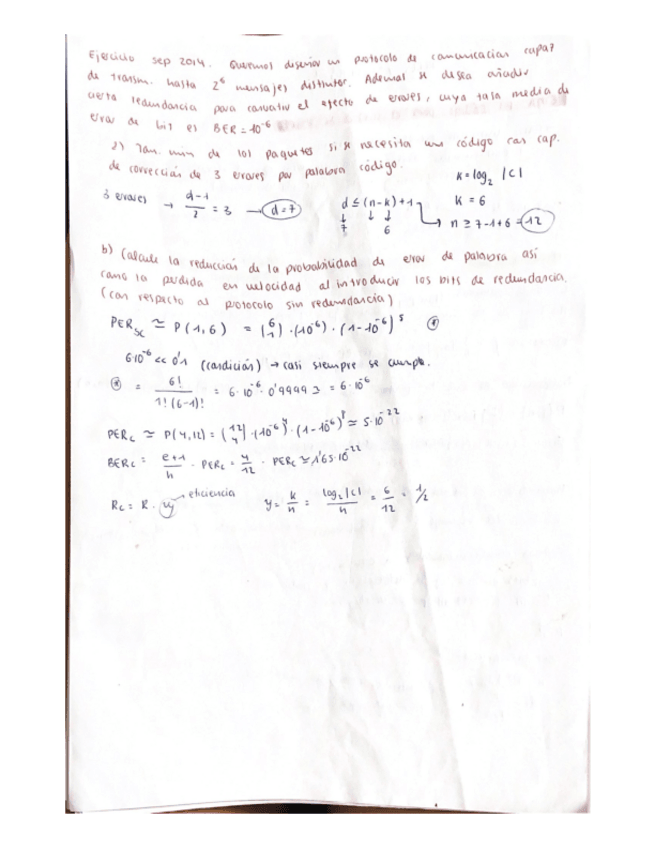 Ejercicio sep 2014. Queremos diseñar un protocolo de comunicacion capaz
de transm. hasta 2^6 mensajes distintos. Ademas se desea añadir
cierta redundancia para combatir el efecto de errores, cuya tasa media de
error de bit es BER = 10^-6
a) Tam. min de los paquetes si se necesita un código con cap.
de corrección de 3 errores por palabra código.
3 errores → (d-1)/2 = 3 → d=7
d ≤ (n-k)+1
7 6
k = log₂ |C|
k = 6
n ≥ 7-1+6 = 12
b) Calcule la reducción de la probabilidad de error de palabra así
como la perdida en velocidad al introducir los bits de redundancia.
(con respecto al protocolo sin redundancia)
PER_SC ≃ P(1,6) = (6 1) · (10^-6) · (1-10^-6)^5 *
6·10^-6 << 0'1 (condición) → casi siempre se cumple.
* = 6! / 1!(6-1)! = 6·10^-6 · 0'99993 = 6·10^-6
PER_C ≃ P(4,12) = (12 4) · (10^-6)^4 · (1-10^-6)^8 ≃ 5·10^-22
BER_C = (e+1)/n · PER_C = 4/12 · PER_C ≃ 1'65·10^-22
R_C = R · η → eficiencia
η = k/n = log₂|C|/n = 6/12 = 1/2